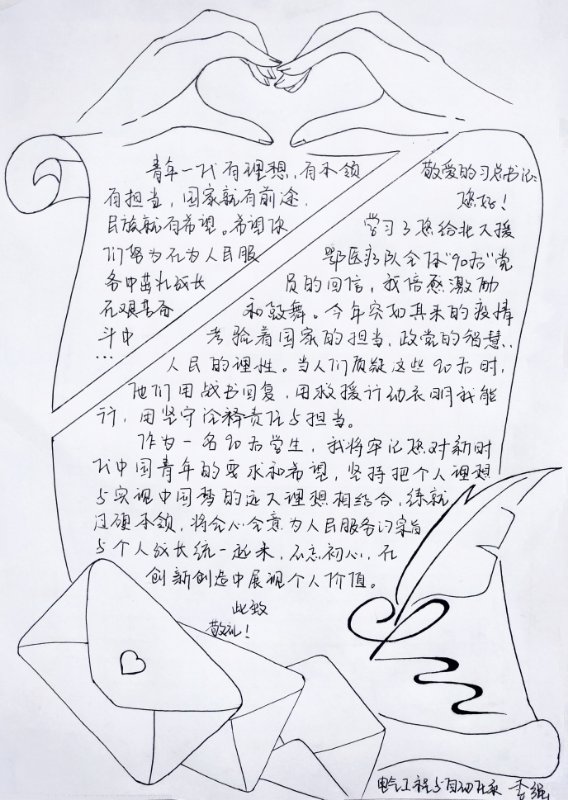 青年一代有理想、有本领
有担当，国家就有前途，
民族就有希望。希望你
们努力在为人民服
务中茁壮成长
在艰苦奋
斗中
…
敬爱的习总书记：
您好！
学习了您给北大援
鄂医疗队全体“90后”党
员的回信，我倍感激励
和鼓舞。今年突如其来的疫情
考验着国家的担当，政党的智慧、
人民的理性。当人们质疑这些90后时，
他们用战书回复，用救援行动表明我能
行，用坚守诠释责任与担当。
作为一名90后学生，我将牢记您对新时
代中国青年的要求和希望，坚持把个人理想
与实现中国梦的远大理想相结合，练就
过硬本领，将全心全意为人民服务的宗旨
与个人成长统一起来，不忘初心，在
创新创造中展现个人价值。
此致
敬礼！
电气工程与自动化 李